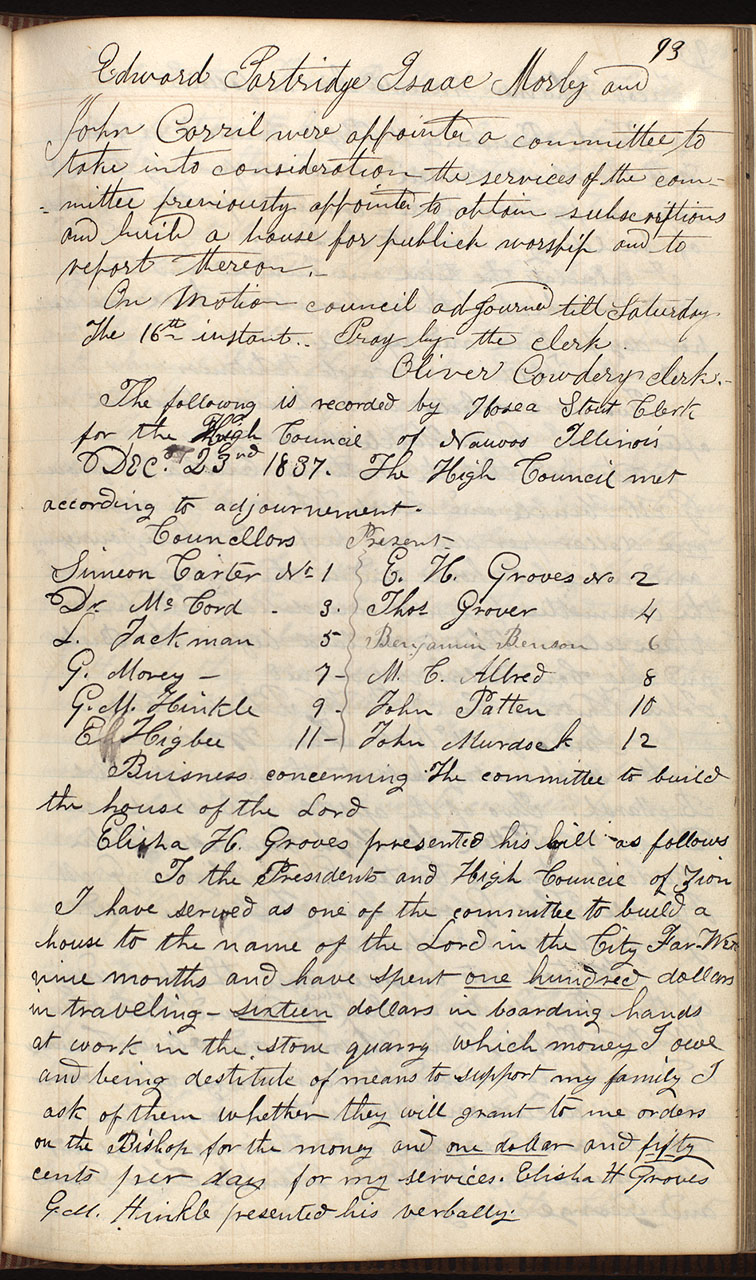 93
Edward Partridge Isaac Morly and
John Corril were appointed a committee to
take into consideration the services of the com-
-mittee previously appointed to obtain subscriptions
and build a house for publick worship and to
report thereon.-
On Motion council adjourned till Saturday
The 16th instant.. Pray by the clerk.
Oliver Cowdery clerk.-
The following is recorded by Hosea Stout Clerk
for the High Council of Nauvoo Illinois
DEC. 23rd 1837. The High Council met
according to adjournement.
Councellors Present
Simeon Carter No 1 E. H. Groves No 2
Dr. Mc Cord - 3. Thos Grover 4
L. Jackman 5 Benjamin Benson 6
G. Morey - 7- M. C. Allred 8
G. M. Hinkle 9- John Patten 10
E Higbee 11- John Murdock 12
Buisness concerning The committee to build
the house of the Lord
Elisha H. Groves presented his bill as follows
To the Presidents and High Council of Zion
I have served as one of the committee to build a
house to the name of the Lord in the City Far-West
nine months and have spent one hundred dollars
in traveling - sixteen dollars in boarding hands
at work in the stone quarry which money I owe
and being destitute of means to support my family I
ask of them whether they will grant to me orders
on the Bishop for the money and one dollar and fifty
cents per day for my services. Elisha H Groves
G.M. Hinkle presented his verbally.